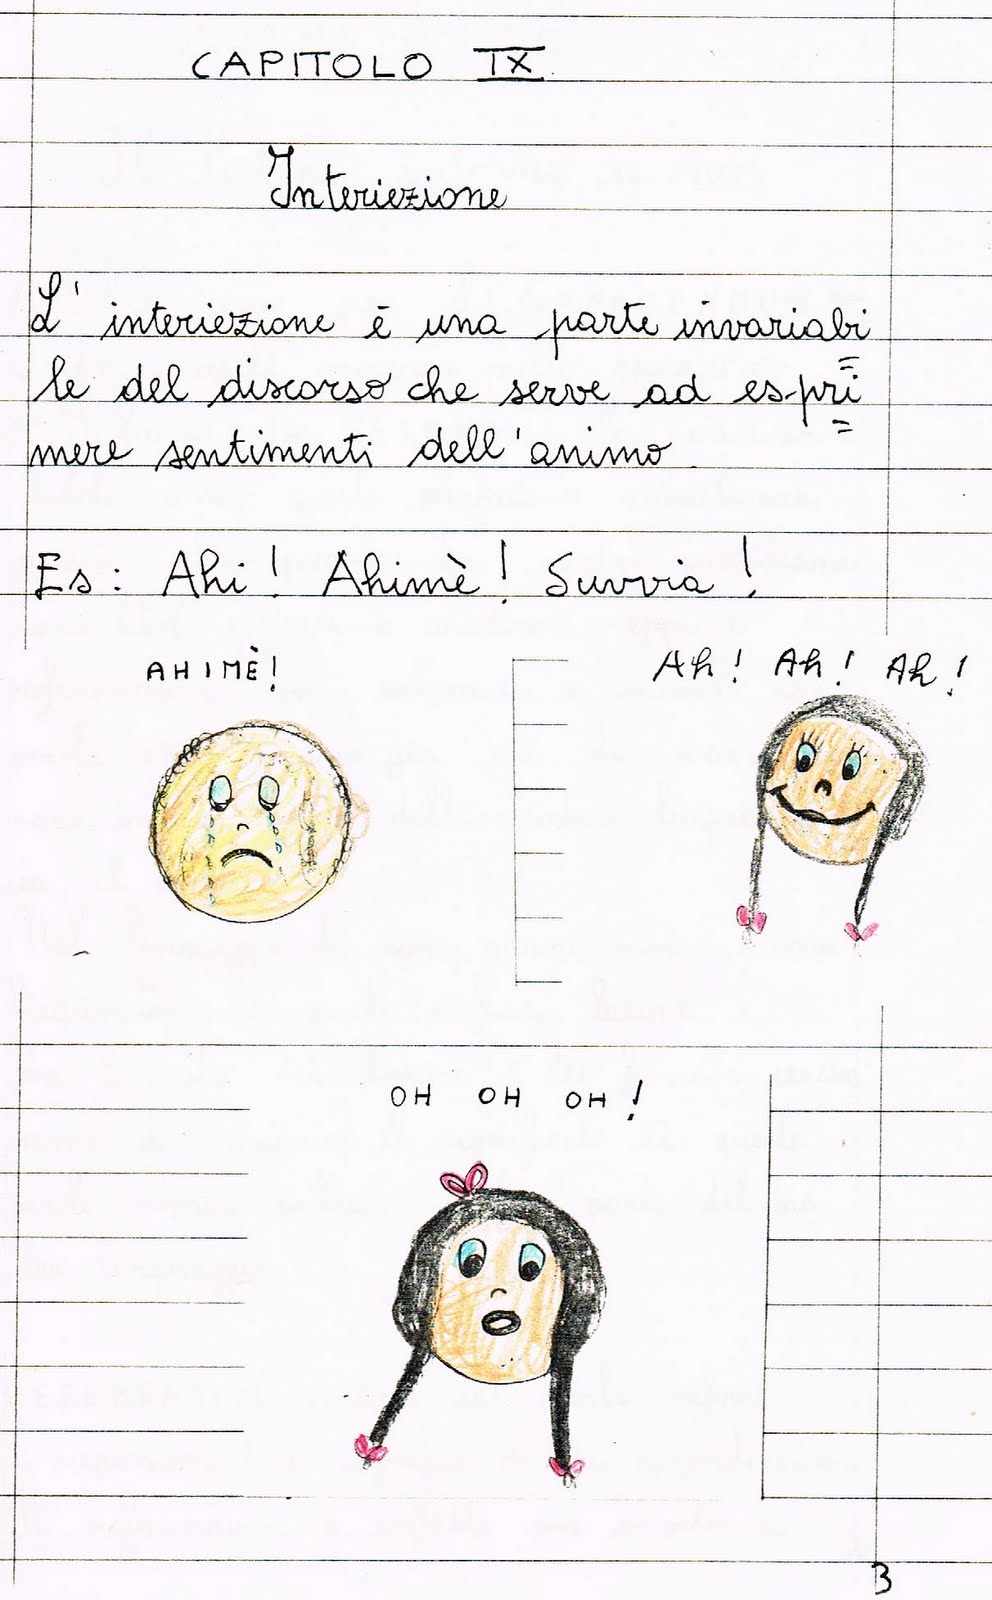 CAPITOLO IX
Interiezione
L'interiezione è una parte invariabi=
le del discorso che serve ad espri=
mere sentimenti dell'animo.
Es: Ahi! Ahimè! Suvvia!
AHIMÈ!
Ah! Ah! Ah!
OH OH OH!
3